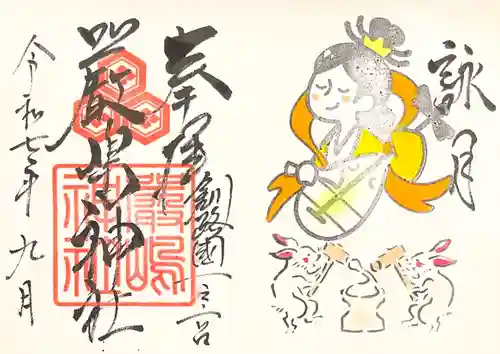 詠月
奉拝
釧路國一之宮
厳島神社
嚴嶋神社
令和七年九月